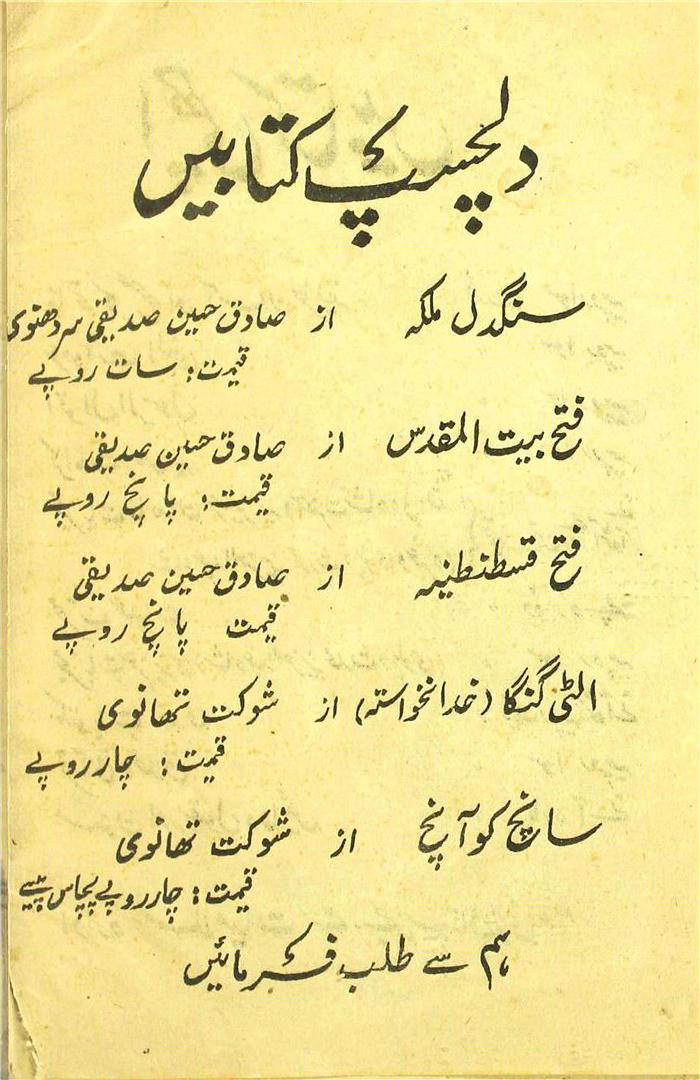 دلچسپ کتابیں
سنگدل ملکہ از صادق حسین صدیقی سردھنوی
قیمت: سات روپے
فتح بیت المقدس از صادق حسین صدیقی
قیمت: پانچ روپے
فتح قسطنطنیہ از صادق حسین صدیقی
قیمت پانچ روپے
الٹی گنگا (خدانخواستہ) از شوکت تھانوی
قیمت: چار روپے
سانچ کو آنچ از شوکت تھانوی
قیمت: چار روپے پچاس پیسے
ہم سے طلب فرمائیں